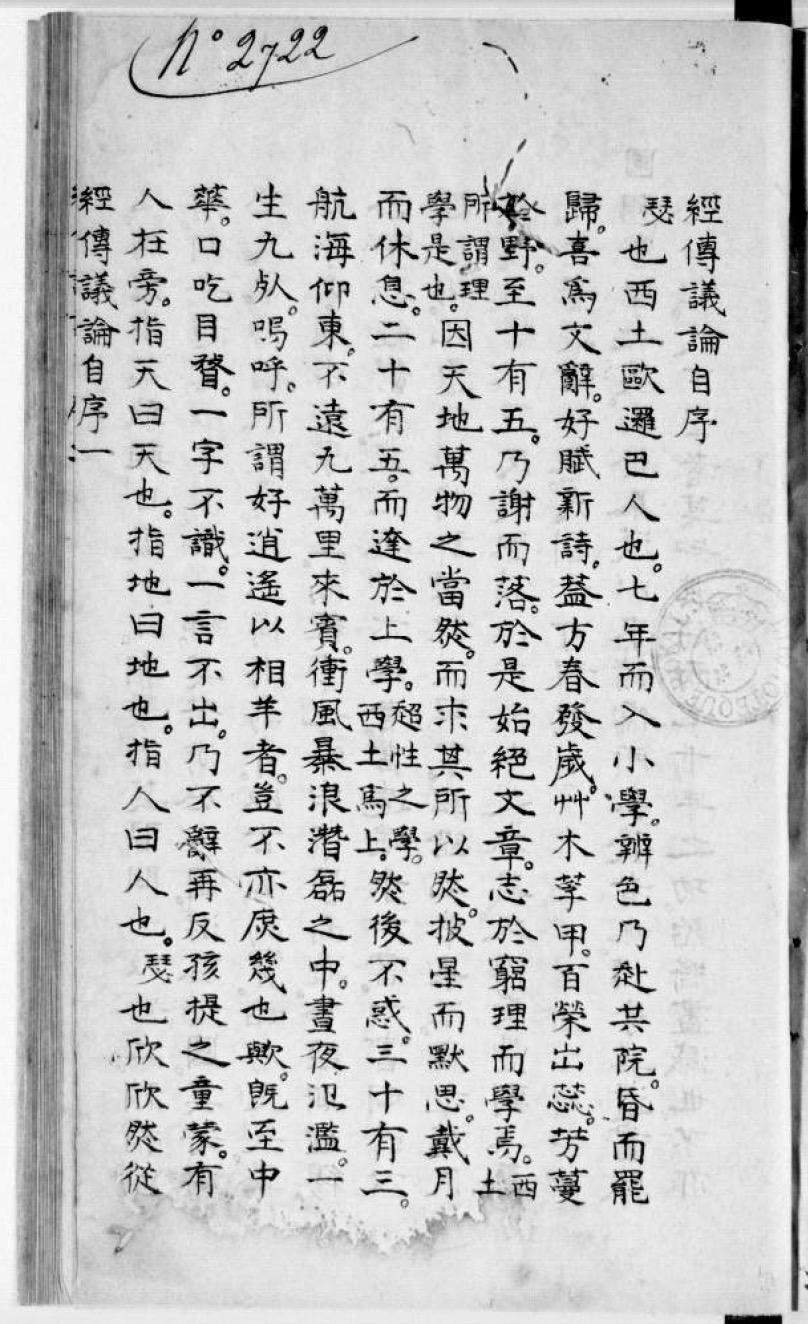 N° 2722
經傳議論自序
瑟也西土歐邏巴人也。七年而入小學。辨色乃赴共院。昏而罷
歸。喜爲文辭。好賦新詩。葢方春發歲。艸木莩甲。百榮出蕊。芳蔓
於野。至十有五。乃謝而落。於是始絕文章。志於窮理而學焉。西土
所謂理學是也。因天地萬物之當然。而求其所以然。披星而默思。戴月
而休息。二十有五。而達於上學。超性之學。西土爲上。然後不惑。三十有三。
航海仰東。不遠九萬里來賓。衝風暴浪潛磊之中。晝夜氾濫。一
生九死。嗚呼。所謂好逍遙以相羊者。豈不亦庶幾也歟。旣至中
華。口吃目瞀。一字不識。一言不出。乃不辭再反孩提之童蒙。有
人在旁。指天曰天也。指地曰地也。指人曰人也。瑟也欣欣然從
經傳議論自序一